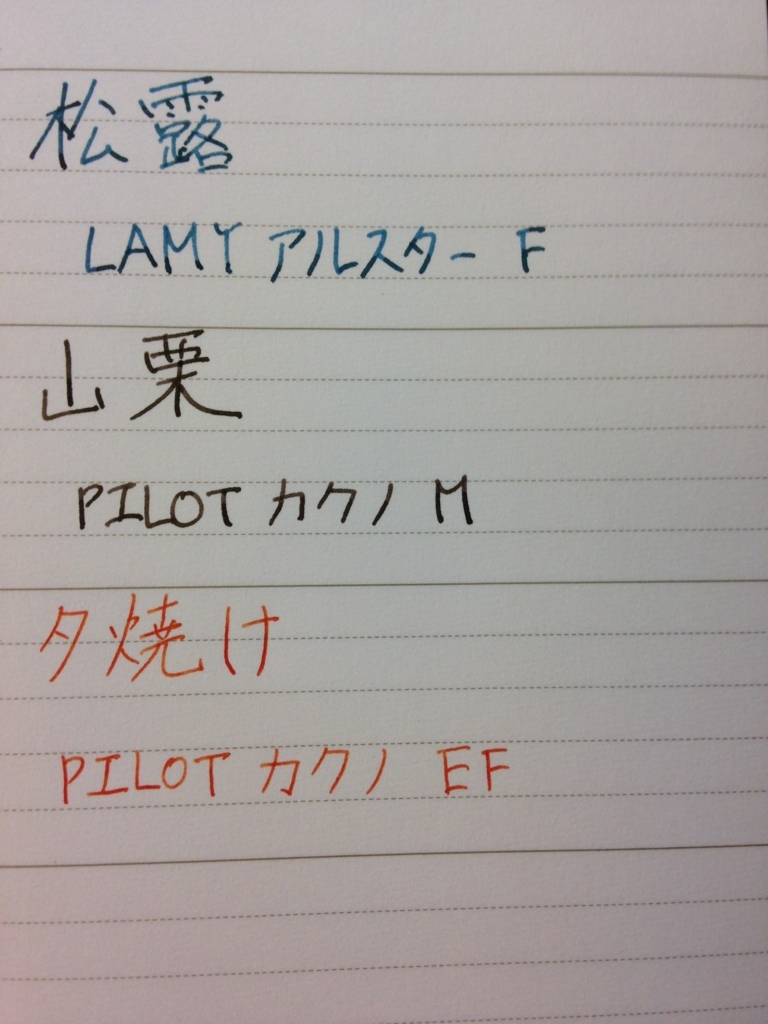 松露
LAMY アルスター F
山栗
PILOT カクノ M
夕焼け
PILOT カクノ EF